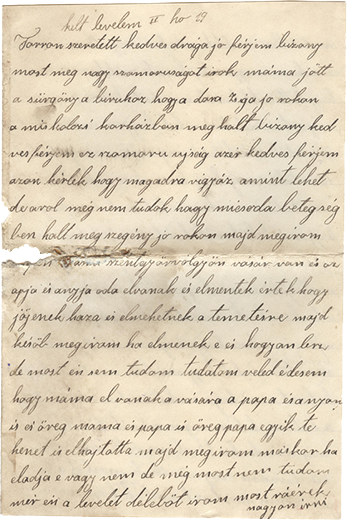 kelt levelem II hó 23
Forron szeretett kedves drága jó férjem bizony
most meg nagy szomoruságot irok máma jött
a sürgöny a biruhoz hogy a dara Ziga jo rokon
a miskolczi korházben meg halt bizony ked
ves férjem ez szomoru ujság azér kedves férjem
azon kérlek hogy magadra vigyáz amint lehet
de arol még nem tudok hogy micsoda betegség
ben halt meg szegény jó rokon majd megirom
máma szentgyörvölgyön vásár van és az
apja és anyja oda elvanak és elmentek értek hogy
jöjenek haza és elmehetnek a temetésre majd
késöb megirom ha elmenek e és hogyan lesz
de most én sem tudom tudatom veled édesem
hogy máma el vanak a vására a papa és anyon
is és öreg mama és papa is öreg papa egyik te
henet is elhajtotta majd megirom máskor ha
eladja e vagy nem de még most nem tudom
mer én a levelet déleböt irom most ráérek
nagyon irni